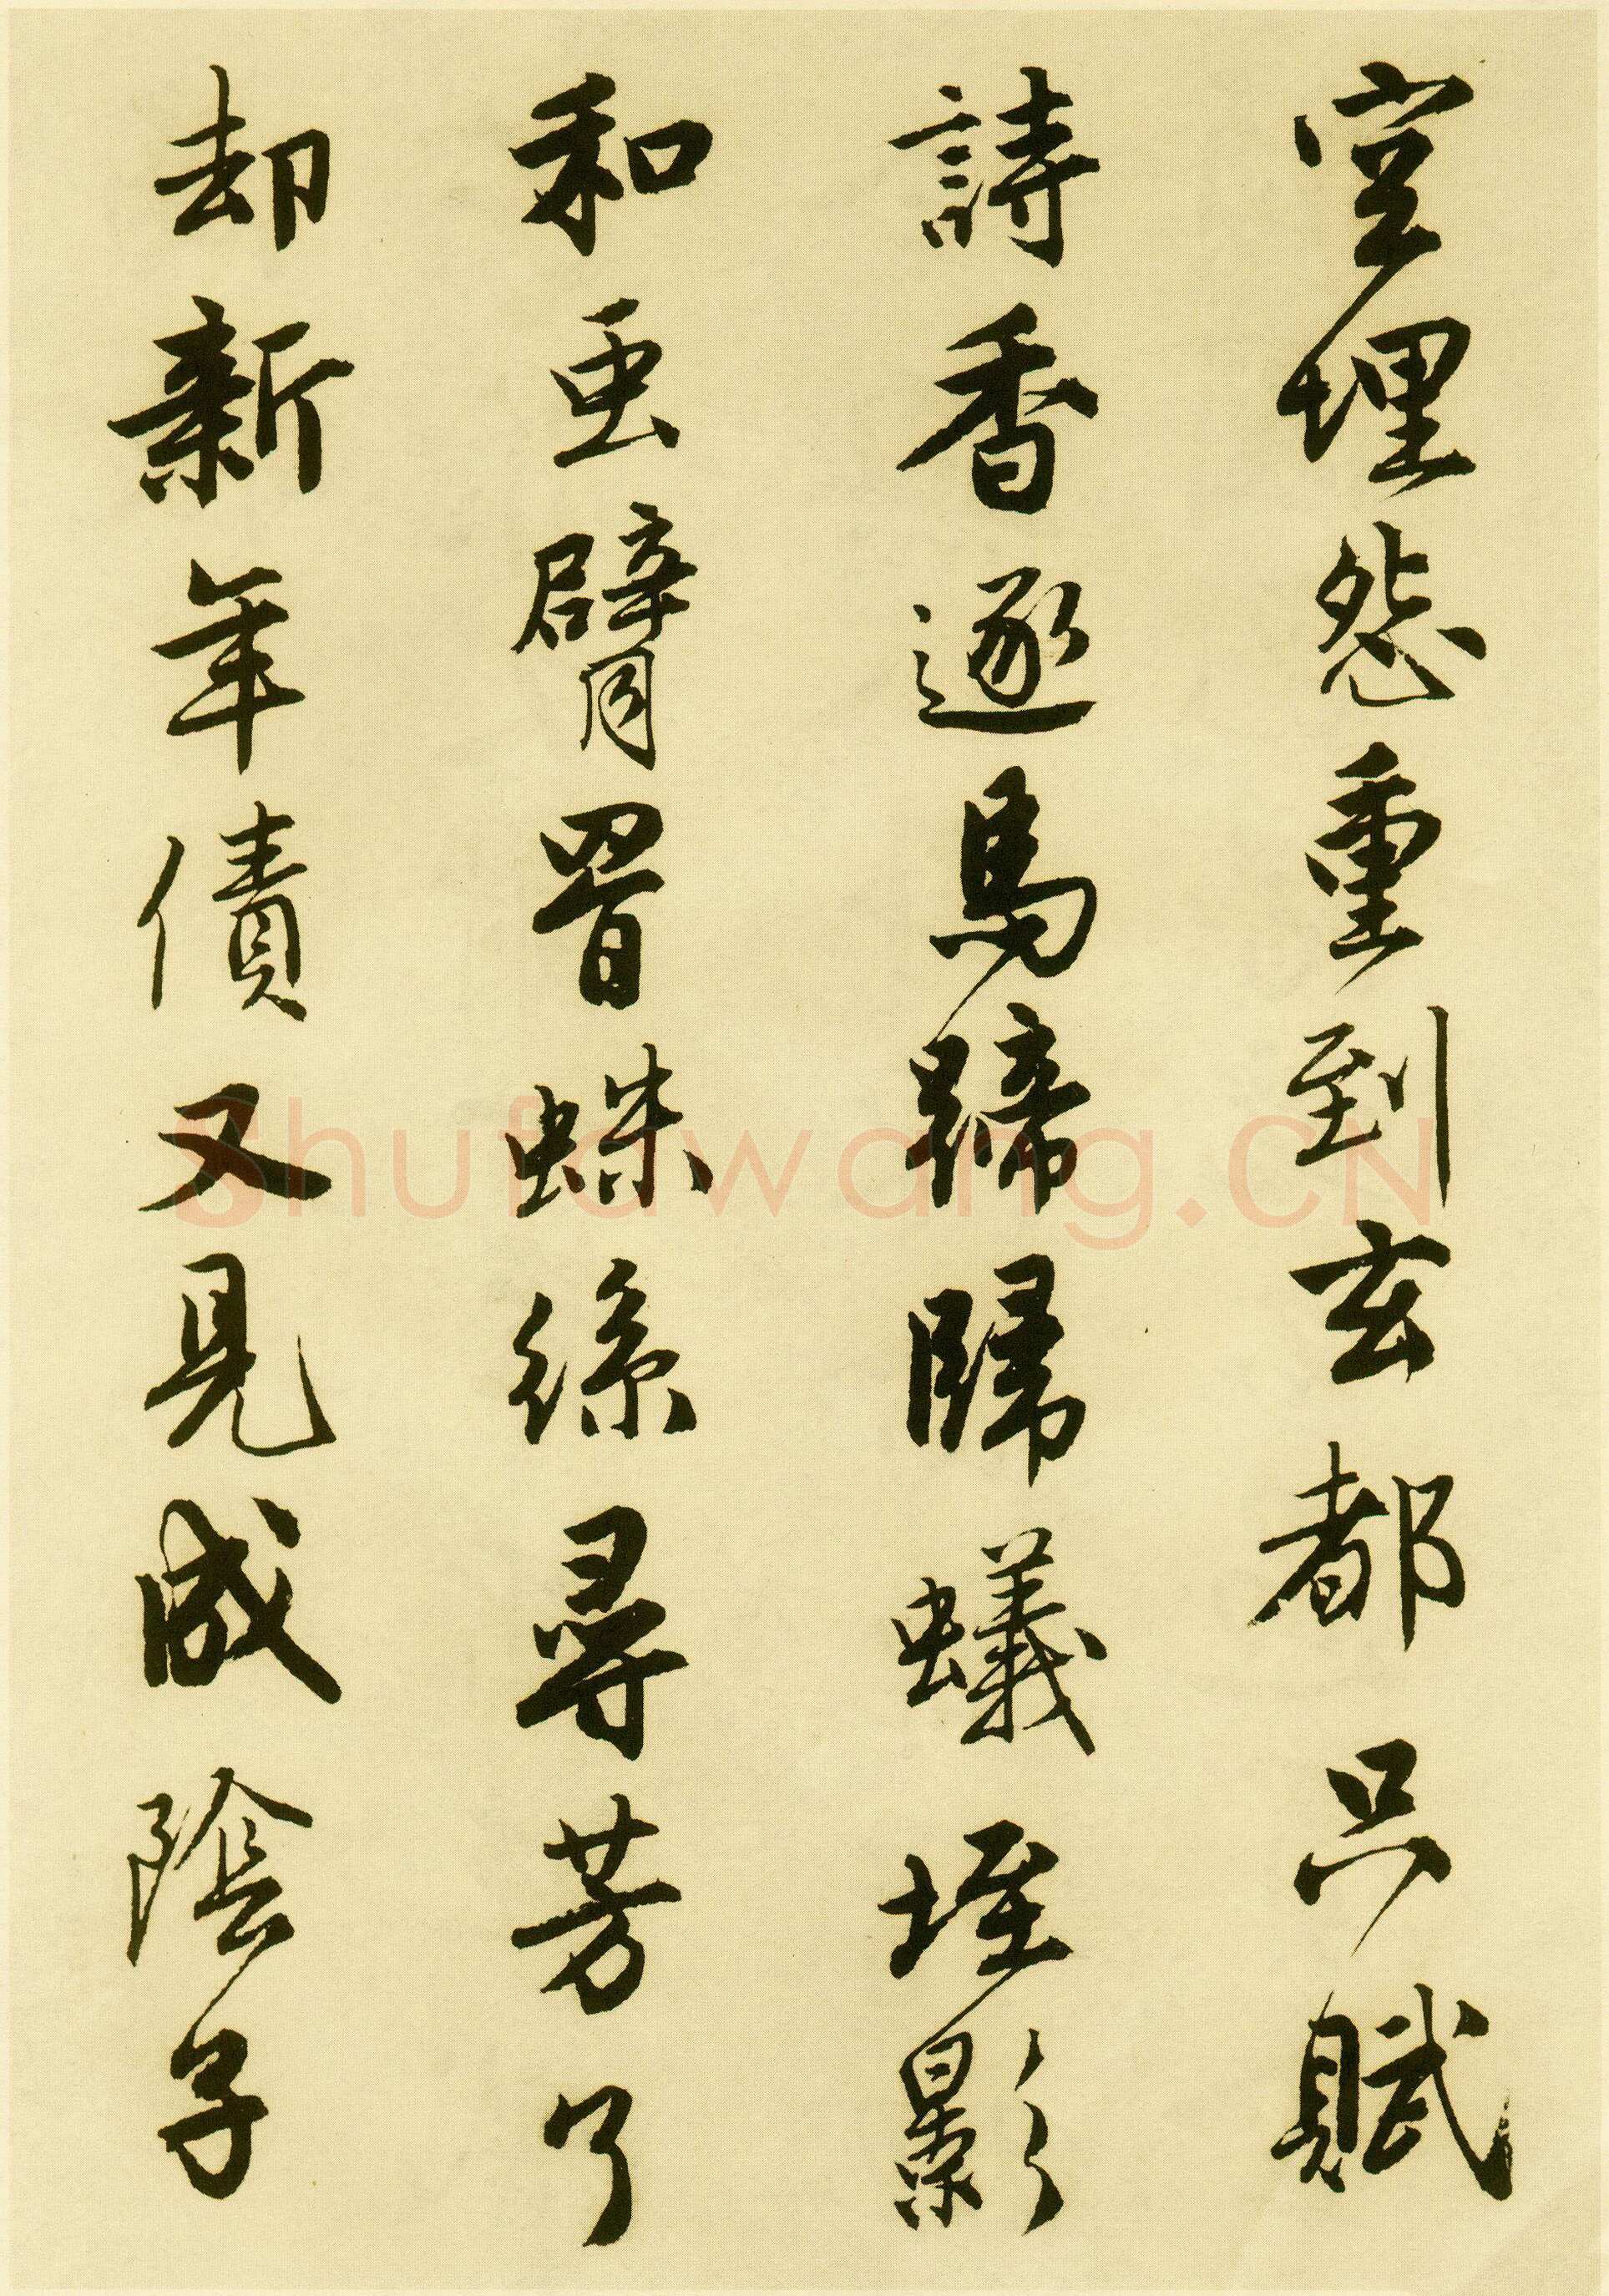 空埋怨重到玄都只賦
詩香逐馬蹄歸蟻垤影
和虫臂罥蛛絲尋芳了
却新年債又見成陰子
shufawang.CN